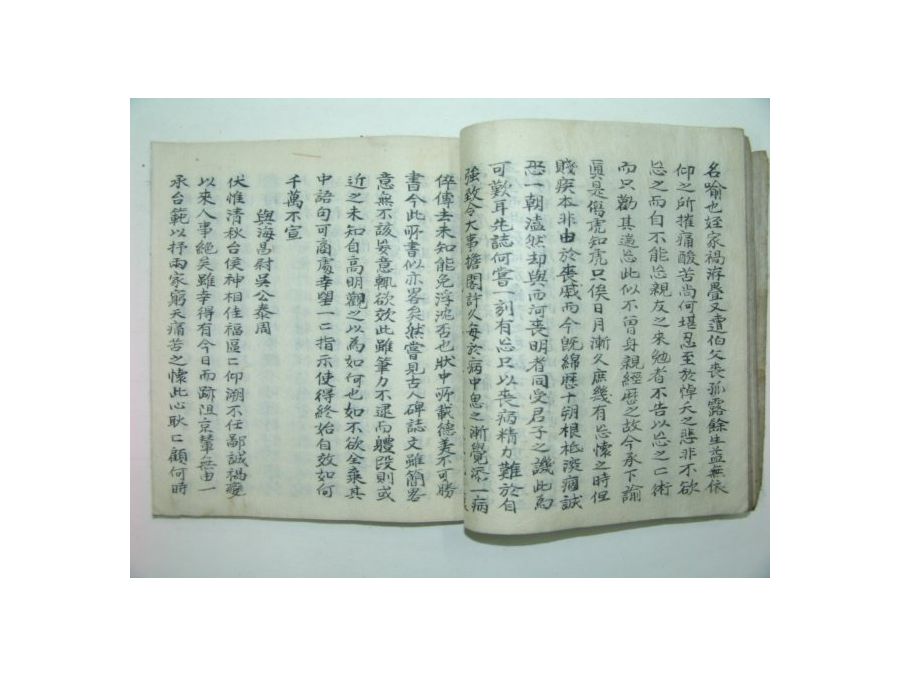 名喻也姪家禍荐疊又遭伯父喪孤露餘生益無依
仰之所摧痛酸苦尚何堪忍至於悼夭之悲非不欲
忘之而自不能忘親友之來勉者不告以忘之之術
而只勸其遄忘此似不曾身親經歷之故今承下諭
眞是傷虎知虎只俟日月漸久庶幾有忘懷之時但
賤疾本非由於喪戚而今旣綿歷十朔根柢深痼誠
恐一朝溘然却與西河喪明者同受君子之譏此爲
可歎耳先誌何嘗一刻有忘只以喪病精力難於自
強致令大事擔閣許久每於病中思之漸覺添一病
倅傳去未知能免浮沈否也狀中所載德美不可勝
書今此所書似亦畧矣然嘗見古人碑誌文雖簡畧
意無不該妄意輒欲效此雖筆力不逮而軆段則或
近之未知自高明觀之以為如何也如不欲全棄其
中語句可商處幸望一二指示使得終始自效如何
千萬不宣
與海昌尉吳公泰周
伏惟清秋台侯神相佳福區區仰溯不任鄙誠禍變
以來人事絶矣雖幸得有今日而跡阻京輦無由一
承台範以抒兩家窮天痛苦之懷此心耿耿顧何時